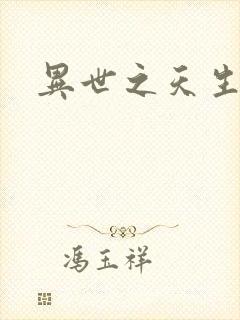 異世之天生
馮玉祥